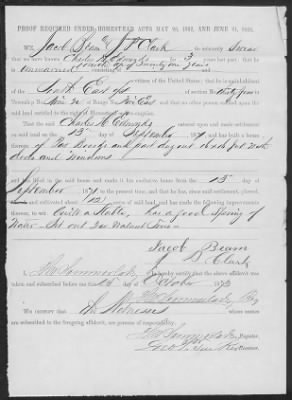 PROOF REQUIRED UNDER HOMESTEAD ACTS MAY 20, 1862, AND JUNE 21, 1866.
WE, Jacob Beam & J S Clark do solemnly swear
that we have known Charles H Edwards for 3 years last past; that he is
unmarried over age of Twenty one years
citizen of the United States; that he is an inhabitant
of the South East qr of section No. Thirty four in
Township No. Nine N of Range No. Five East and that no other person resided upon the
said land entitled to the right of Homestead or Pre-emption.
That the said Charles H Edwards
on said land on the 15th day of September 1871 and has built a house
of Pine Boards and part dug out
doors and Windows
and has lived in the said house and made it his exclusive home from the 15th day of
September 1871 to the present time, and that he has, since said settlement,
and cultivated about 12 acres of said land, and has made the following improvements
thereon, to wit: Built a Stable, has a good Spring of
Water Set out Walnut Trees
Jacob Beam
J S Clark
I, do hereby certify that the above affidavit was
taken and subscribed before me this day of October 1873
WE CERTIFY that Witnesses whose names
are subscribed to the foregoing affidavit, are persons of respectability.
Register.
Receiver.